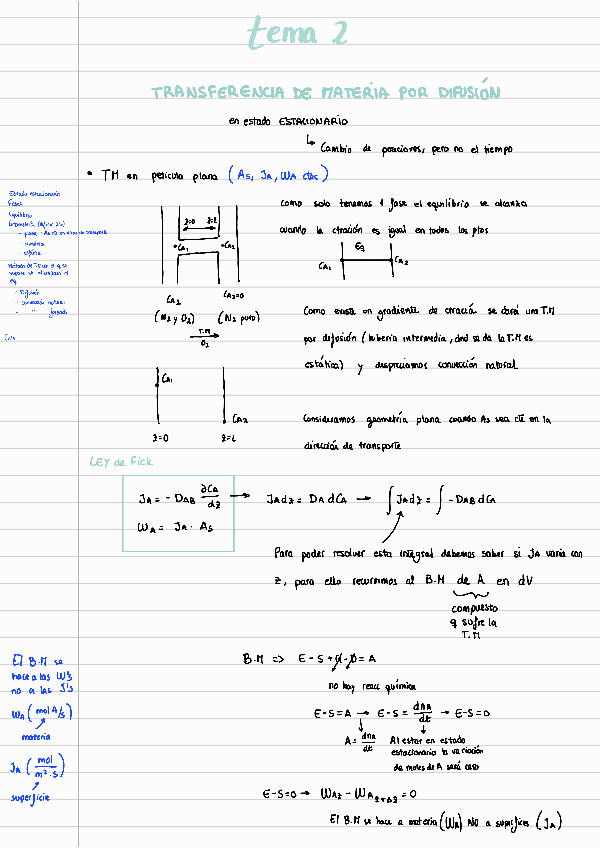 tema 2
TRANSFERENCIA DE MATERIA POR DIFUSIÓN
en estado ESTACIONARIO
↳ Cambio de posiciones, pero no el tiempo
• TM en película plana (As, JA, WA ctes)
Estado estacionario
Fases
Equilibrio
Geometría
- plana
- cilíndrica
- esférica
- Difusión
- convección natural
- " forzada
z=0 z=L
•CA1 •CA2
CA1 CA2=0
(N2 y O2) (N2 puro)
T.M
O2
Como solo tenemos 1 fase el equilibrio se alcanza
cuando la ctración es igual en todos los ptos
Eq
CA1 CA2
Como existe un gradiente de ctración se dará una T.M
por difusión (tubería intermedia, dnd se da la T.M es
estática) y despreciamos convección natural.
CA1
CA2
z=0 z=L
Consideramos geometría plana cuando As sea cte en la
dirección de transporte
LEY de Fick
JA = - DAB ∂CA/dz → JA dz = DA dCA → ∫ JA dz = ∫ - DAB dCA
WA = JA · As
Para poder resolver esta integral debemos saber si JA varía con
z, para ello recurrimos al B.M de A en dV
compuesto
q sufre la
T.M
El B.M se
hace a las W's
no a las J's
WA (mol A/s)
materia
JA (mol/m²·s)
superficie
B.M => E - S + G - D = A
no hay reacc química
E-S=A → E-S = dnA/dt → E-S=0
A = dnA/dt
Al estar en estado
estacionario la variación
de moles de A será cero
E-S=0 → WAz - WAz+Δz = 0
El B.M se hace a materia (WA) NO a superficies (JA)